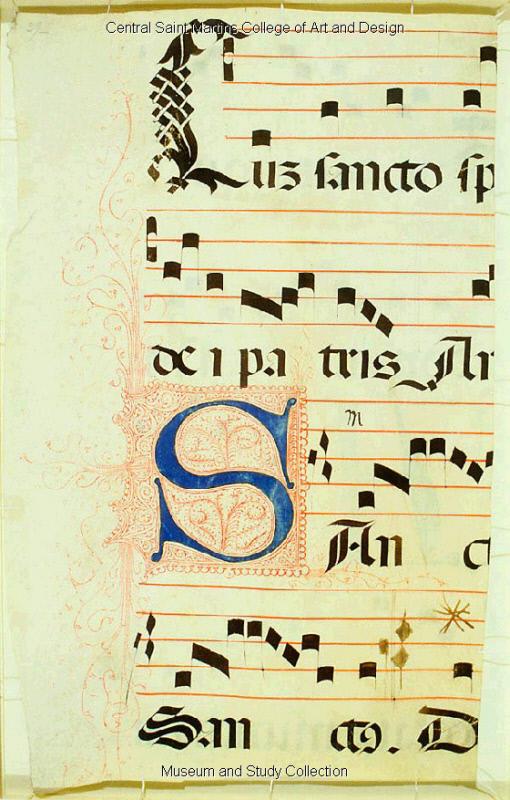 Central Saint Martins College of Art and Design
Cuz sancto sp
dei patris Am
m
SAn ct
San ctꝰ. D
Museum and Study Collection